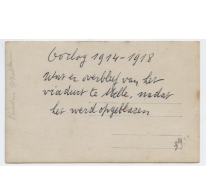 Oorlog 1914-1918
Wat er overblijf van het
viaduct te Melle, nadat
het werd opgeblazen